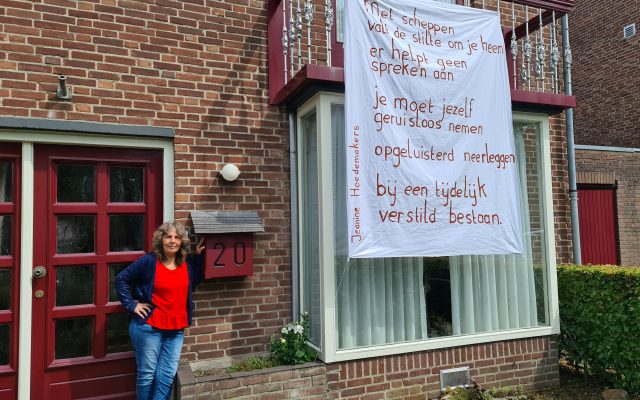 Met scheppen
valt de stilte om je heen
er helpt geen
spreken aan
je moet jezelf
geruisloos nemen
opgeluisterd neerleggen
bij een tijdelijk
verstild bestaan.
Jeanine Hoedemakers
20